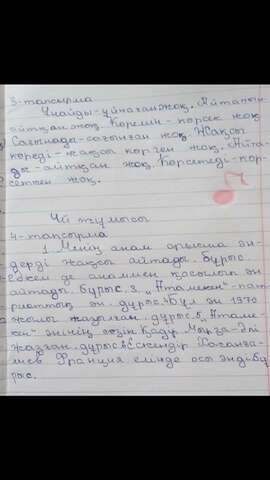 3-тапсырма
Ұнайды-ұнаған жоқ. Айтамын-
айтқан жоқ. Көремін-көрсек жоқ
Сағынады-сағынған жоқ. Жақсы
көреді-жақсы көрген жоқ. Айта-
ды-айтқан жоқ. Көрсетеді-көр-
сеткен жоқ.
Үй жұмысы
4-тапсырма
1. Менің анам орысша ән-
дерді жақсы айтады. бұрыс.
де анаммен қосылып ән
айтады. бұрыс. 3. „Атамекен"-пат-
риоттық ән. дұрыс. 4. Бұл ән 1970
жылы жазылған. дұрыс. 5. „Атаме-
кен" әнінің сөзін Қадыр Мырза-Әлі
жазған. дұрыс. 6. Ескендір Хасанға-
лиев Франция елінде осы әнді бұ
рыс.